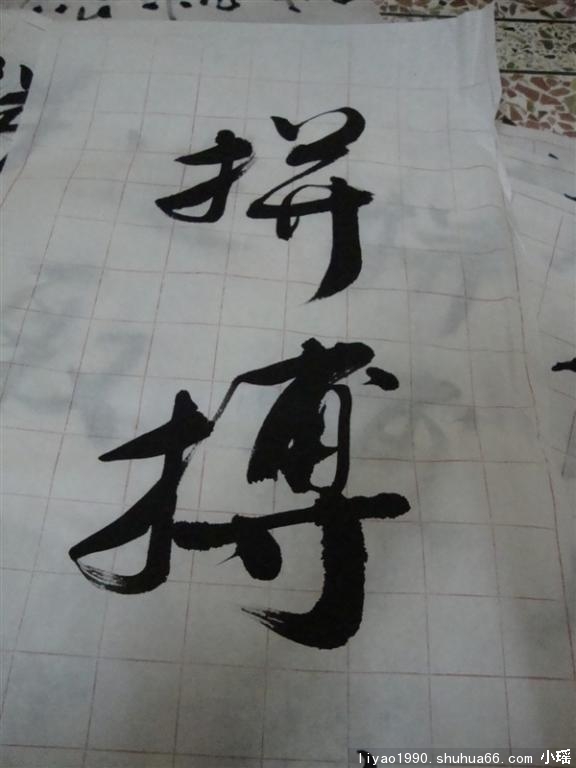 拼
搏
liyao1990.shuhua66.com 小瑶